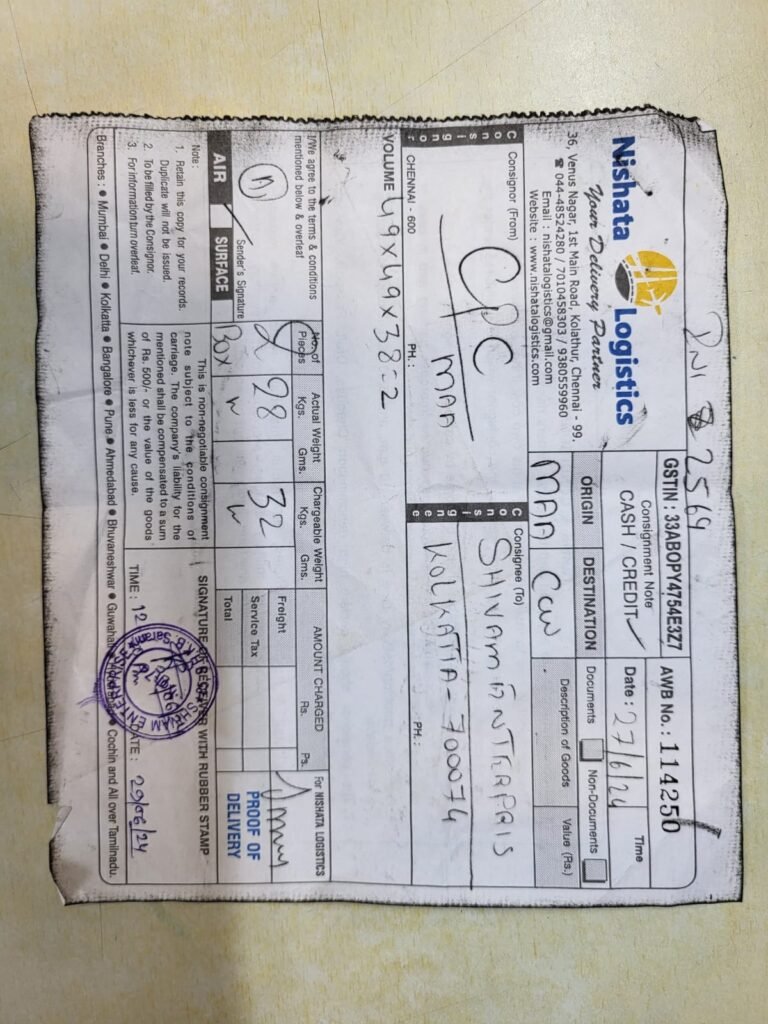 PNI 2564
Nishata Logistics
Your Delivery Partner
36, Venus Nagar, 1st Main Road, Kolathur, Chennai - 99.
☎ 044-48524280 / 7010458303 / 9380559960
Email : nishatalogistics@gmail.com
Website : www.nishatalogistics.com
GSTIN : 33ABOPY4754E3Z7
Consignment Note
CASH / CREDIT ✓
AWB No.: 114250
Date : 27/6/24
Time
ORIGIN
DESTINATION
MAA
CCU
Documents
Non-Documents
Description of Goods
Value (Rs.)
Consignor
Consignor (From)
CPC
MAA
CHENNAI - 600
PH. :
Consignee
Consignee (To)
SHIVAM ENTERPRIS
KOLKATTA - 700074
PH. :
VOLUME 49 x 49 x 38 = 2
I/We agree to the terms & conditions
mentioned below & overleaf
Sender's Signature
AIR
SURFACE
No. of
Pieces
Actual Weight
Kgs.
Gms.
Chargeable Weight
Kgs.
Gms.
2
Box
28
32
AMOUNT CHARGED
Rs.
Ps.
Freight
Service Tax
Total
For NISHATA LOGISTICS
PROOF OF
DELIVERY
Note :
1. Retain this copy for your records.
Duplicate will not be issued.
2. To be filled by the Consignor.
3. For information turn overleaf.
This is non-negotiable consignment
note subject to the conditions of
carriage. The company's liability for the
mentioned shall be compensated to a sum
of Rs. 500/- or the value of the goods
whichever is less for any cause.
SIGNATURE OF RECEIVER WITH RUBBER STAMP
TIME : 12
DATE : 29/06/24
SHIVAM ENTERPRISE
Branches : ● Mumbai ● Delhi ● Kolkatta ● Bangalore ● Pune ● Ahmedabad ● Bhuvaneshwar ● Guwahati ● Cochin and All over Tamilnadu.